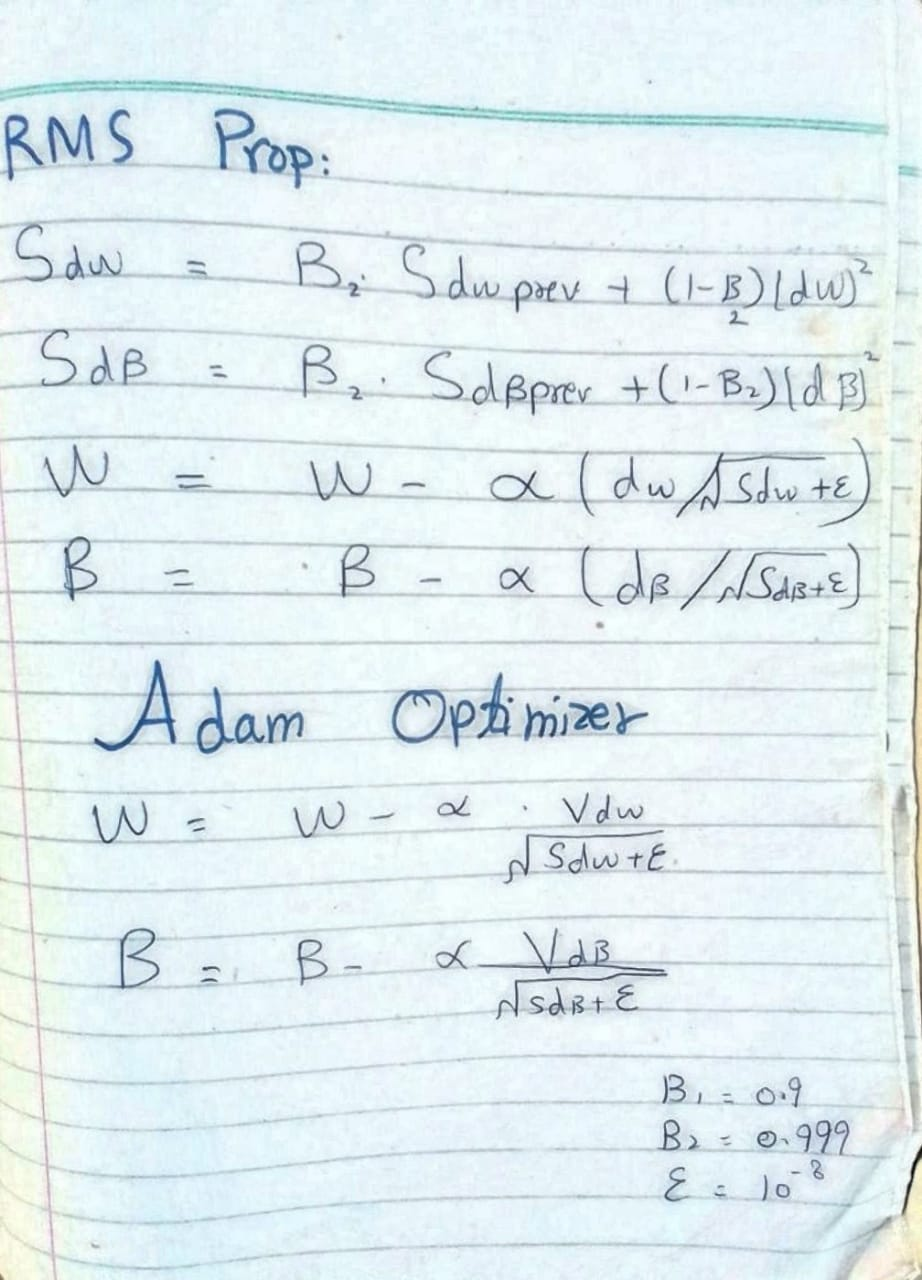 RMS Prop:
Sdw = B₂. Sdw prev + (1-B₂)(dw)²
Sdβ = B₂. Sdβprev + (1-B₂)(dβ)²
W = W - α (dw/√Sdw+ε)
B = B - α (dβ/√Sdβ+ε)
Adam Optimizer
W = W - α . Vdw
√Sdw+ε
B = B - α Vdβ
√sdβ+ε
B₁ = 0.9
B₂ = 0.999
ε = 10⁻⁸